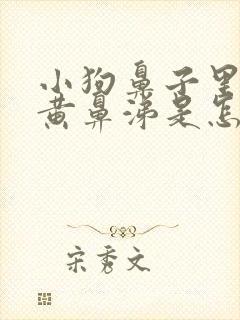 小狗鼻子里
黄鼻涕是怎
宋秀文